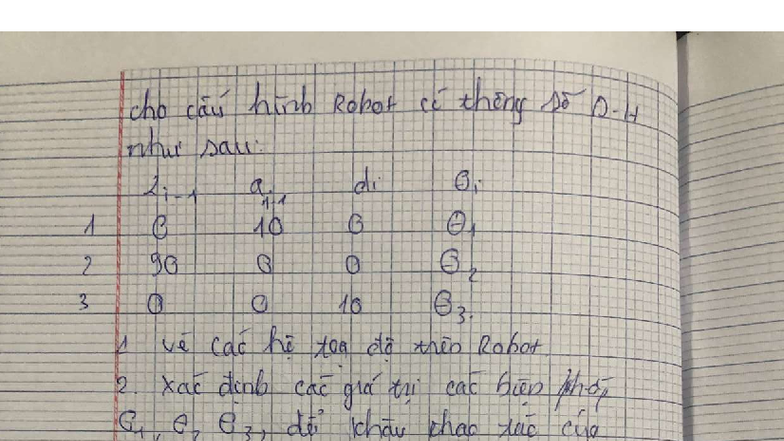 cho cấu hình Robot có thông số D-H
như sau:
αi-1 ai-1 di θi
1 0 10 0 θ1
2 90 0 0 θ2
3 0 0 10 θ3.
1 vẽ các hệ toạ độ trên Robot
2. xác định các giá trị các biến khớp
θ1, θ2 θ3, để khâu thao tác của